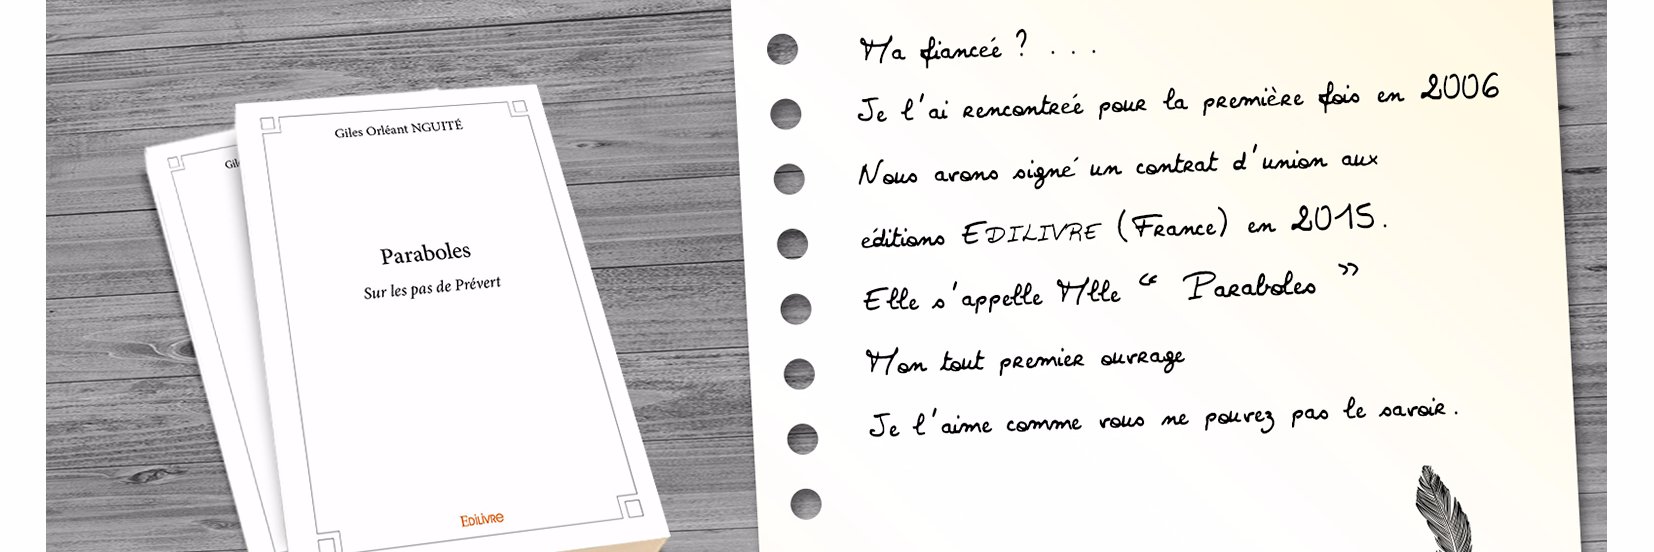 Giles Orléant NGUITÉ
Paraboles
Sur les pas de Prévert
EDILIVRE
Ma fianceé ? . . .
Je l'ai rencontreé pour la première fois en 2006
Nous avons signé un contrat d'union aux
éditions EDILIVRE (France) en 2015.
Elle s'appelle Mlle “ Paraboles ”
Mon tout premier ouvrage
Je l'aime comme vous ne pouvez pas le savoir.